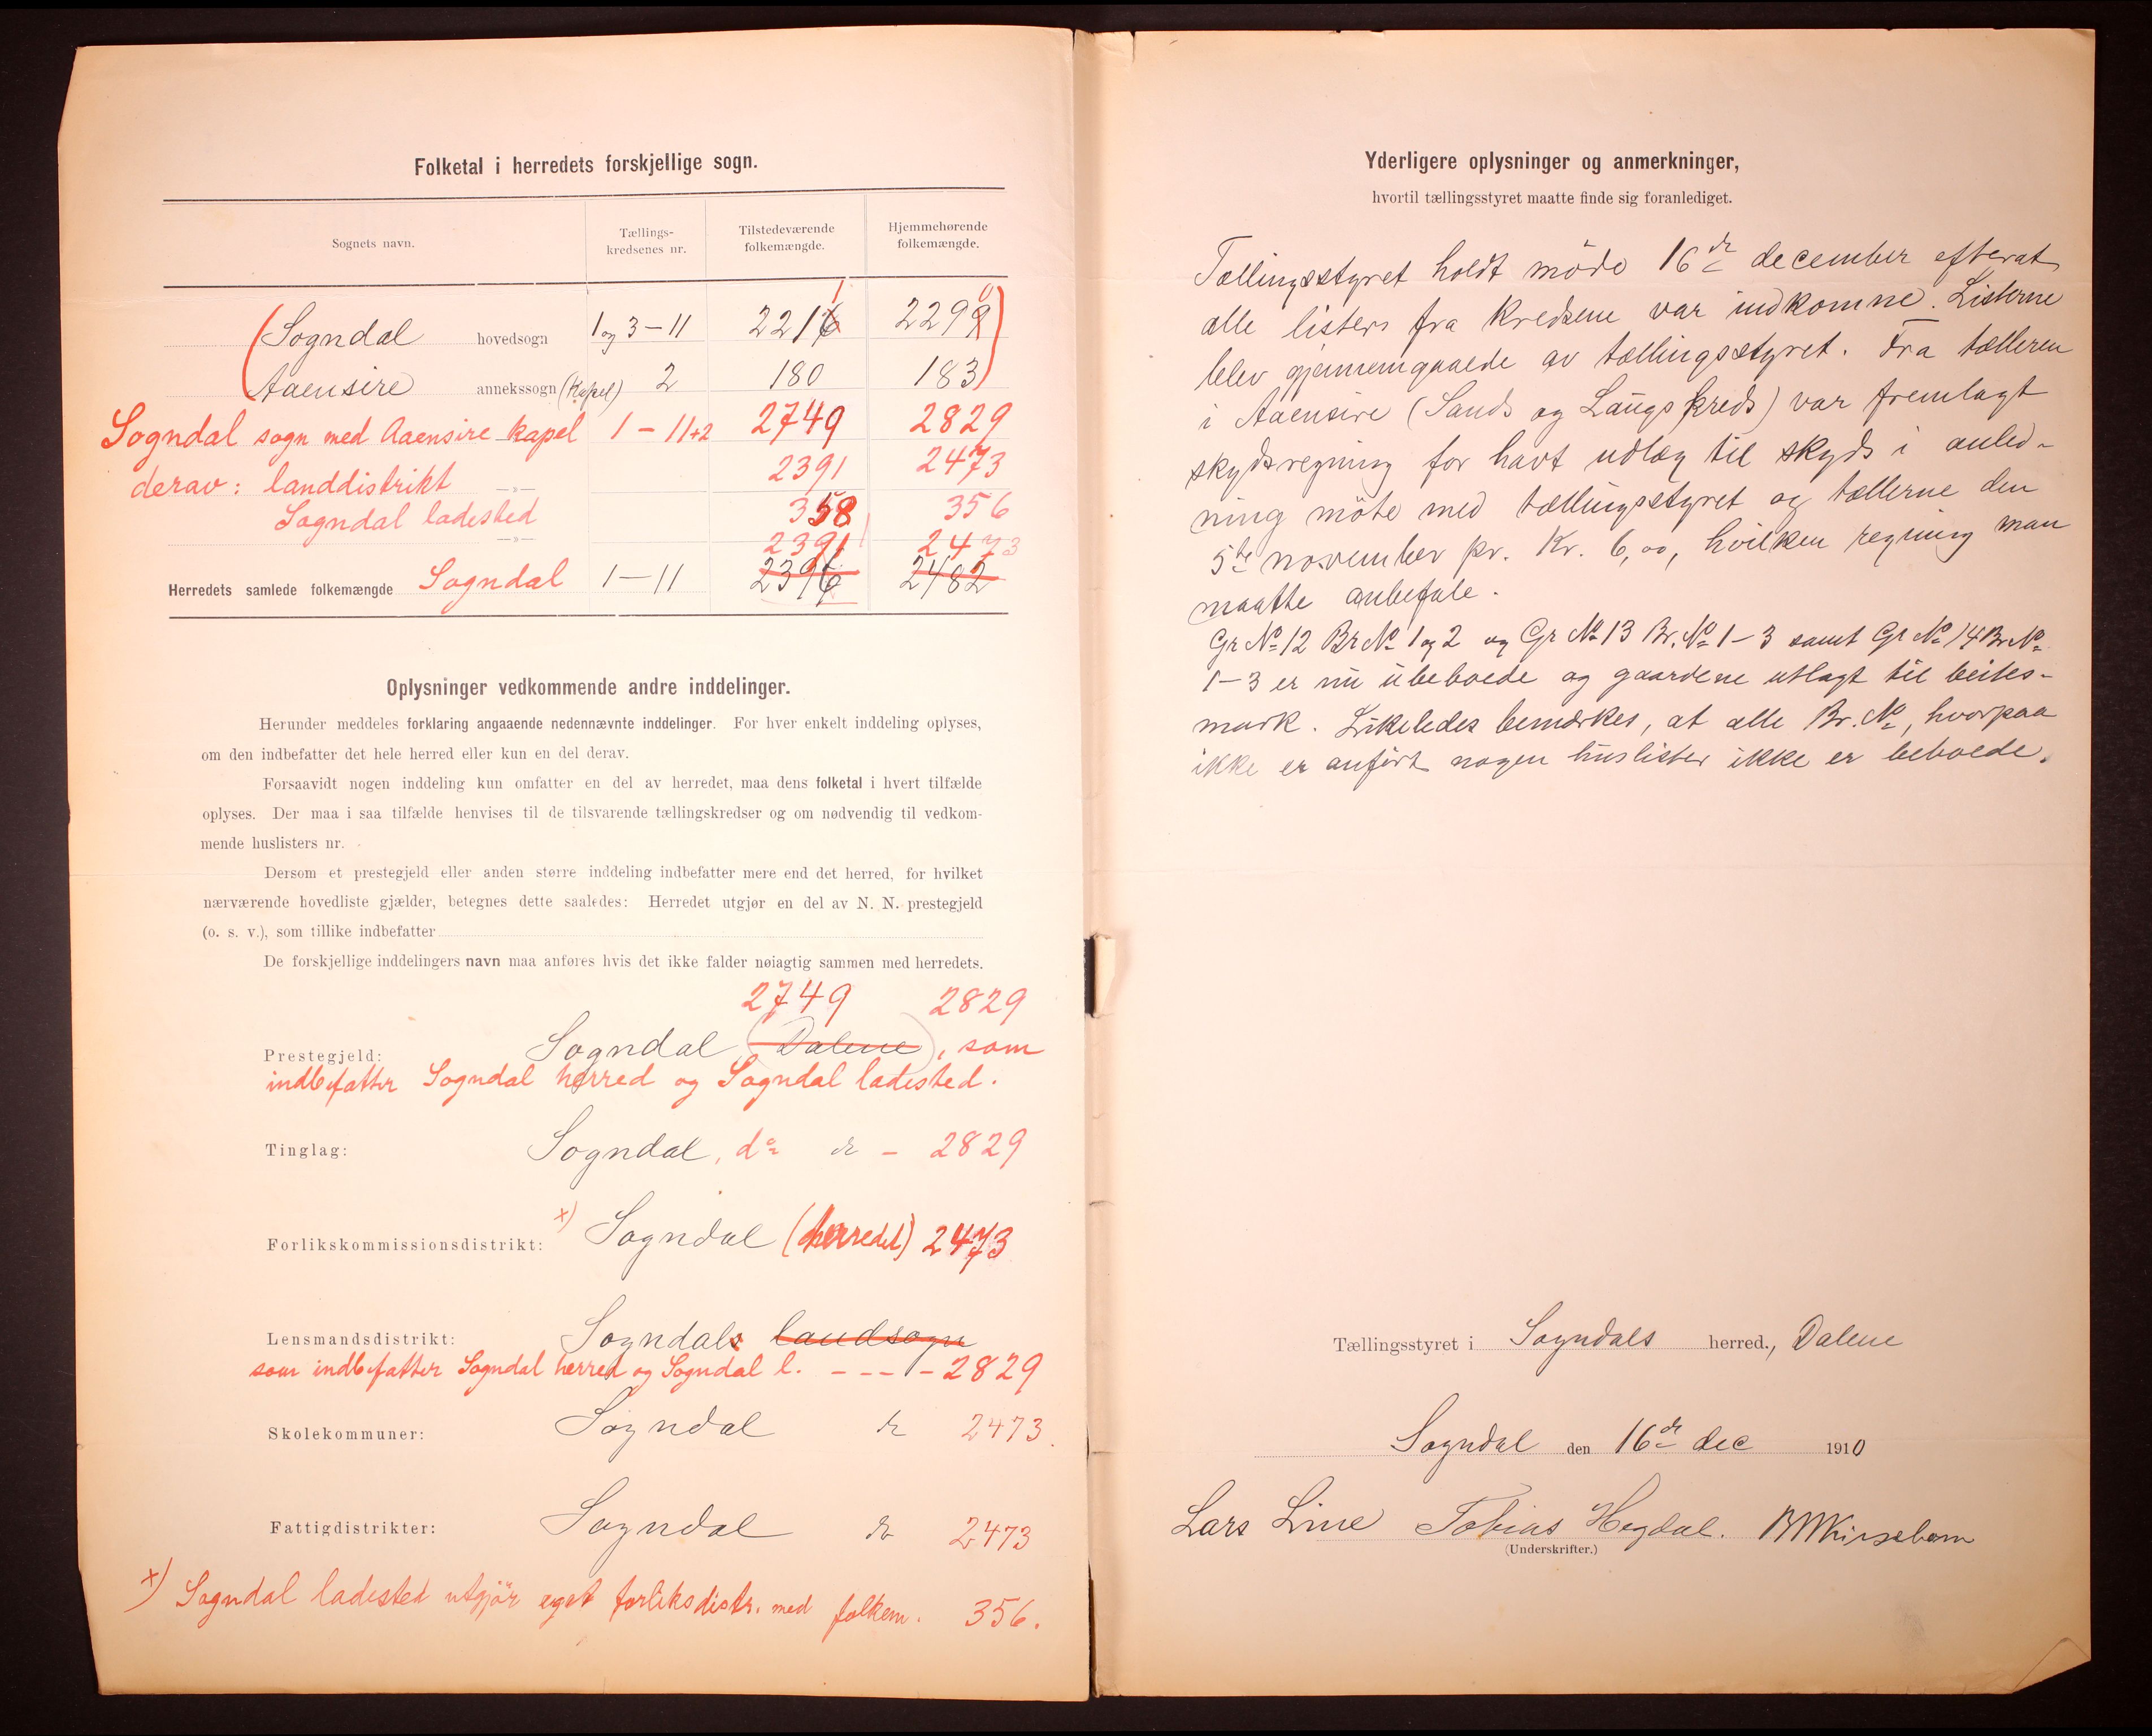 Folketal i herredets forskjellige sogn.
Sognets navn.
Tællings-
kredsenes nr.
Tilstedeværende
folkemængde.
Hjemmehørende
folkemængde.
Sogndal hovedsogn 1 og 3-11 2211 2290
Aaensire annekssogn (Kapel) 2 180 183
Sogndal sogn med Aaensire kapel 1-11+2 2749 2829
derav: landdistrikt -»- 2391 2473
Sogndal ladested -»- 358 356
2391 2473
Herredets samlede folkemængde Sogndal 1-11 2396 2482
Oplysninger vedkommende andre inddelinger.
Herunder meddeles forklaring angaaende nedennævnte inddelinger. For hver enkelt inddeling oplyses,
om den indbefatter det hele herred eller kun en del derav.
Forsaavidt nogen inddeling kun omfatter en del av herredet, maa dens folketal i hvert tilfælde
oplyses. Der maa i saa tilfælde henvises til de tilsvarende tællingskredser og om nødvendig til vedkom-
mende huslisters nr.
Dersom et prestegjeld eller anden større inddeling indbefatter mere end det herred, for hvilket
nærværende hovedliste gjælder, betegnes dette saaledes: Herredet utgjør en del av N. N. prestegjeld
(o. s. v.), som tillike indbefatter
De forskjellige inddelingers navn maa anføres hvis det ikke falder nøiagtig sammen med herredets.
2749 2829
Prestegjeld: Sogndal (Dalene), som
indbefatter Sogndal herred og Sogndal ladested.
Tinglag: Sogndal, do - 2829
Forlikskommissionsdistrikt: x) Sogndal (herredet) 2473
Lensmandsdistrikt: Sogndals landsogn
som indbefatter Sogndal herred og Sogndal l. - - - - 2829
Skolekommuner: Sogndal 2473.
Fattigdistrikter: Sogndal 2473
x) Sogndal ladested utgjør eget forliksdistr. med folkem. 356.
Yderligere oplysninger og anmerkninger,
hvortil tællingsstyret maatte finde sig foranlediget.
Tællingsstyret holdt møde 16de december efterat
alle lister fra kredsene var indkomne. Listerne
blev gjennemgaaede av tællingsstyret. Fra tælleren
i Aaensire (Sands og Laugs kreds) var fremlagt
skydsregning for havt udlæg til skyds i anled-
ning møte med tællingsstyret og tællerne den
5te november pr. Kr. 6,00, hvilken regning man
maatte anbefale.
Gr No 12 Br No 1 og 2 og Gr No 13 Br. No 1-3 samt Gr No 14 Br No
1-3 er nu ubeboede og gaardene utlagt til beites-
mark. Likeledes bemærkes, at alle Br. No, hvorpaa
ikke er anført nogen huslister ikke er beboede.
Tællingsstyret i Sogndals herred., Dalene
Sogndal den 16de dec 1910
Lars Line Tobias Hegdal.
(Underskrifter.)